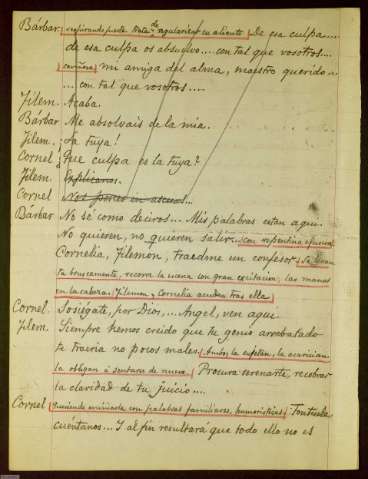 Bárbar. (respirando fuerte. Trata de regularizar su aliento) De esa culpa....
de esa culpa os absuelvo.... con tal que vosotros...
(cariñosa) mi amiga del alma, maestro querido...
.... con tal que vosotros....
Filem. Acaba.
Bárbar. Me absolvais de la mía.
Filem. ¡La tuya!
Cornel. ¿Que culpa es la tuya?
Filem. Explícanos.
Cornel Nos pones en ascuas...
Bárbar No sé como deciros... Mis palabras estan aqui.
No quieren, no quieren salir. (con repentina efusion)
Cornelia, Filemón, traedme un confesor. (Se levan
ta bruscamente, recorre la escena con gran excitacion, las manos
en la cabeza. Filemon y Cornelia acuden tras ella)
Cornel. Sosiégate, por Dios,... Angel, ven aqui.
Filem. Siempre hemos creido que tu genio arrebatado
te traeria no pocos males. (Ambos la sujetan, la acarician
la obligan á sentarse de nuevo) Procura serenarte, recobrar
la claridad de tu juicio....
Cornel (queriendo animarla con palabras familiares, humorísticas) Tontuela
cuéntanos... Y al fin resultará que todo ello no es